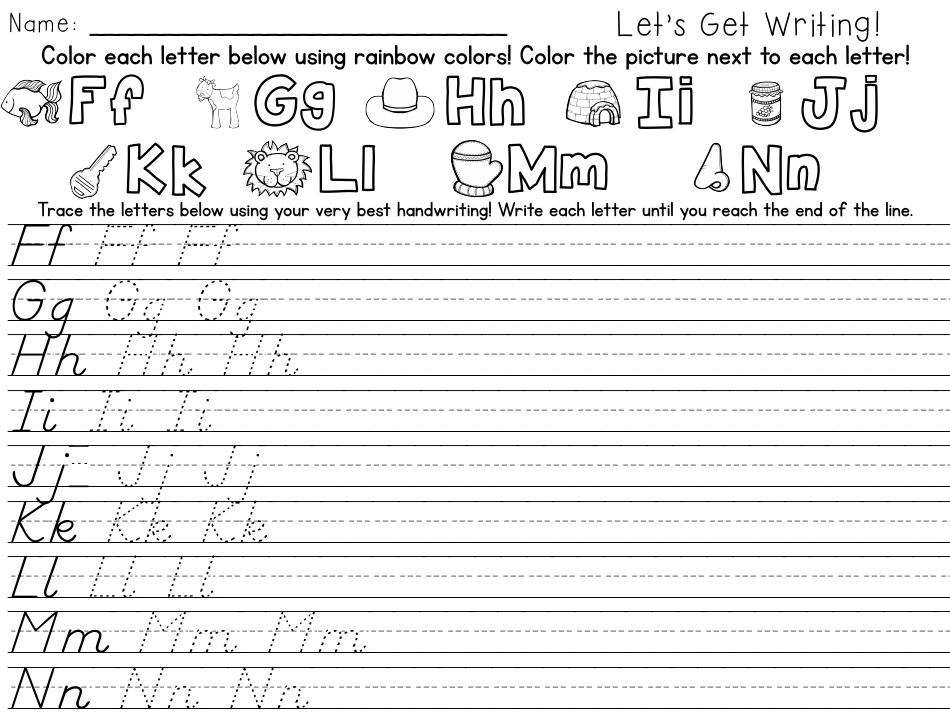 Name:
Let's Get Writing!
Color each letter below using rainbow colors! Color the picture next to each letter!
Ff Gg Hh Ii Jj
Kk Ll Mm Nn
Trace the letters below using your very best handwriting! Write each letter until you reach the end of the line.
Ff Ff Ff
Gg Gg Gg
Hh Hh Hh
Ii Ii Ii
Jj Jj Jj
Kk Kk Kk
Ll Ll Ll
Mm Mm Mm
Nn Nn Nn